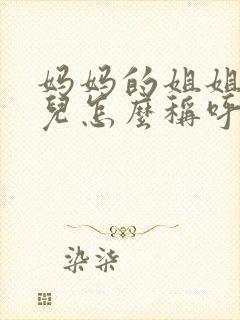 妈妈的姐姐
兒怎麼稱呼
染柒